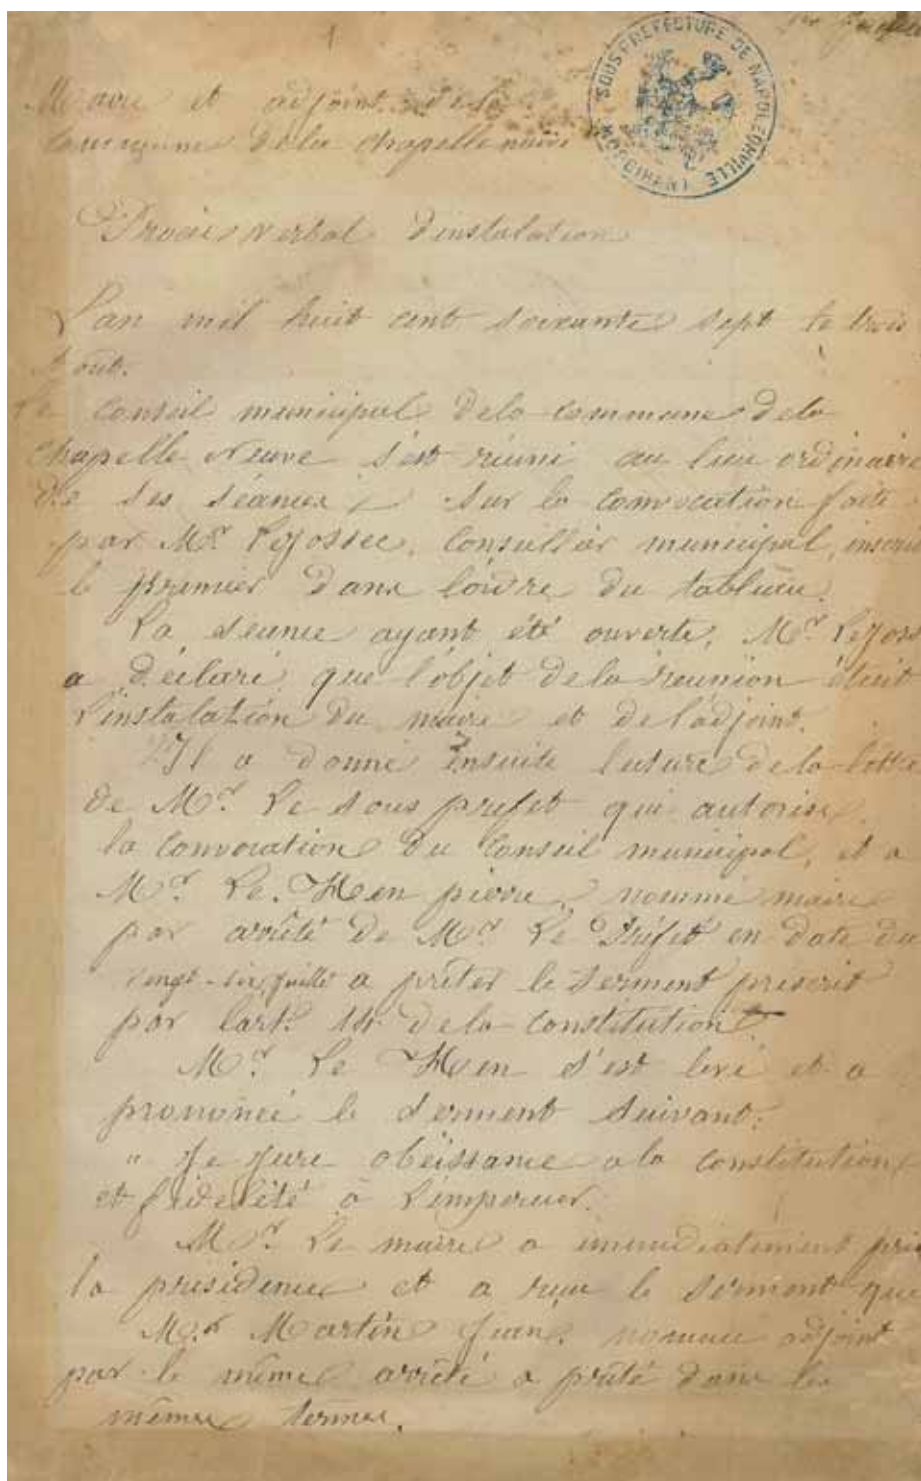 SOUS PREFECTURE DE NAPOLEONVILLE (MORBIHAN)
Maire et adjoint de la
Commune de la chapelle neuve
Procès verbal d'instalation
L'an mil huit cent soixante sept le trois
Août.
Le Conseil municipal de la commune de la
chapelle Neuve s'est réuni au lieu ordinaire
de ses séances, sur la convocation faite
par Mr Lejossec, Conseiller municipal, inscrit
le premier dans l'ordre du tableau.
La séance ayant été ouverte, Mr Lejoss
a déclaré que l'objet de la réunion était
L'instalation du maire et de l'adjoint.
Il a donné ensuite lecture de la lettre
de Mr Le sous prefet qui autorise
la convocation du Conseil municipal, et a
Mr Le Hen pierre, nommé maire
par arrêté de Mr Le Préfet en date du
vingt-six juillet a prêter le serment prescrit
par l'art. 14 de la constitution
Mr Le Hen s'est levé et a
prononcé le serment suivant:
" Je jure obéissance a la constitution
et fidélité à L'empereur.
Mr Le maire a immediatement pris
la présidence et a reçu le serment que
Mr Martin Jean, nommé adjoint
par le même arrêté a prêté dans les
mêmes termes.